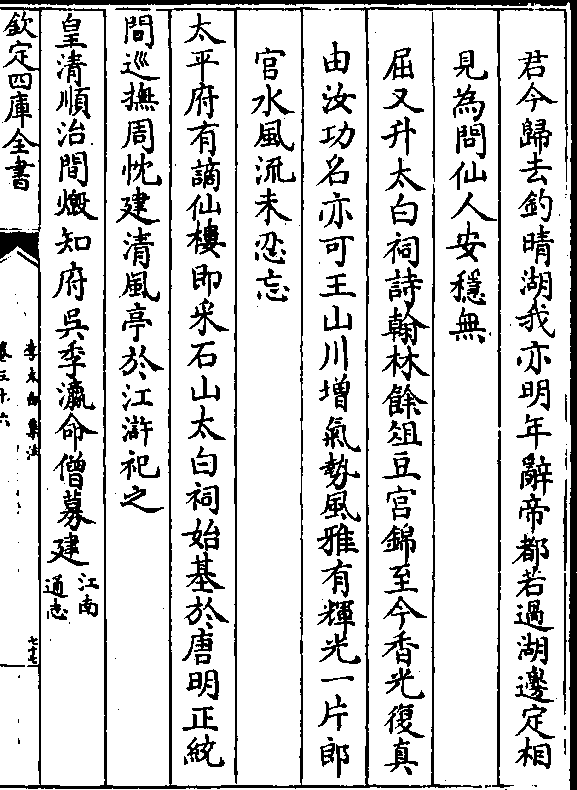 君今歸去釣晴湖我亦明年辭帝都若過湖邊定相
見為問仙人安穩無
屈又升太白祠詩翰林餘俎豆宮錦至今香光復真
由汝功名亦可王山川增氣勢風雅有輝光一片郎
官水風流未忍忘
太平府有謫仙樓即采石山太白祠始基於唐明正統
間巡撫周忱建清風亭於江滸祀之
皇清順治間燬知府吳季瀛命僧募建江南
通志
欽定四庫全書
李太白集注
卷三十六
七十七